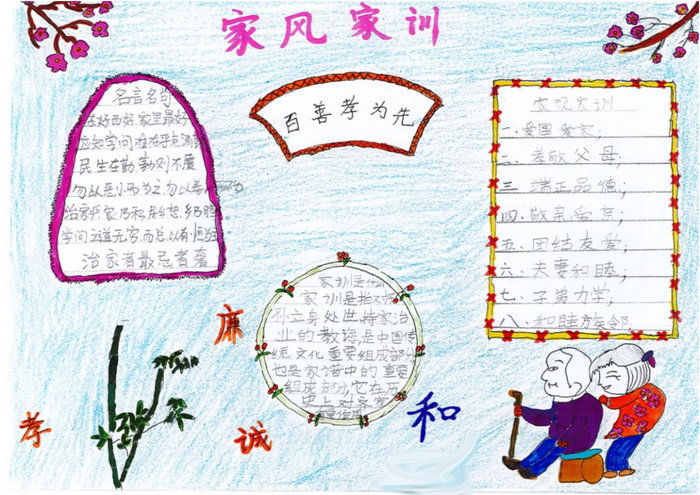 家风家训
名言名句
好西好,家里最好
应知学问难 在乎点滴
民生在勤,勤则不匮
勿以恶小而为之 勿以善
治家严,家乃和,
学问之道无穷,而总以有恒为
治家者最忌者奢
百善孝为先
家规家训
一、爱国爱家;
二、孝敬父母;
三、端正品德;
四、敬亲爱亲;
五、团结友爱;
六、夫妻和睦;
七、子弟力学;
八、和睦族邻
家训是什
家训是指对
孙立身处世,持家治
业的教诲,是中国传
统文化重要组成部
也是家谱中的重要
组成部分,它在历
史上对
廉
孝
诚
和